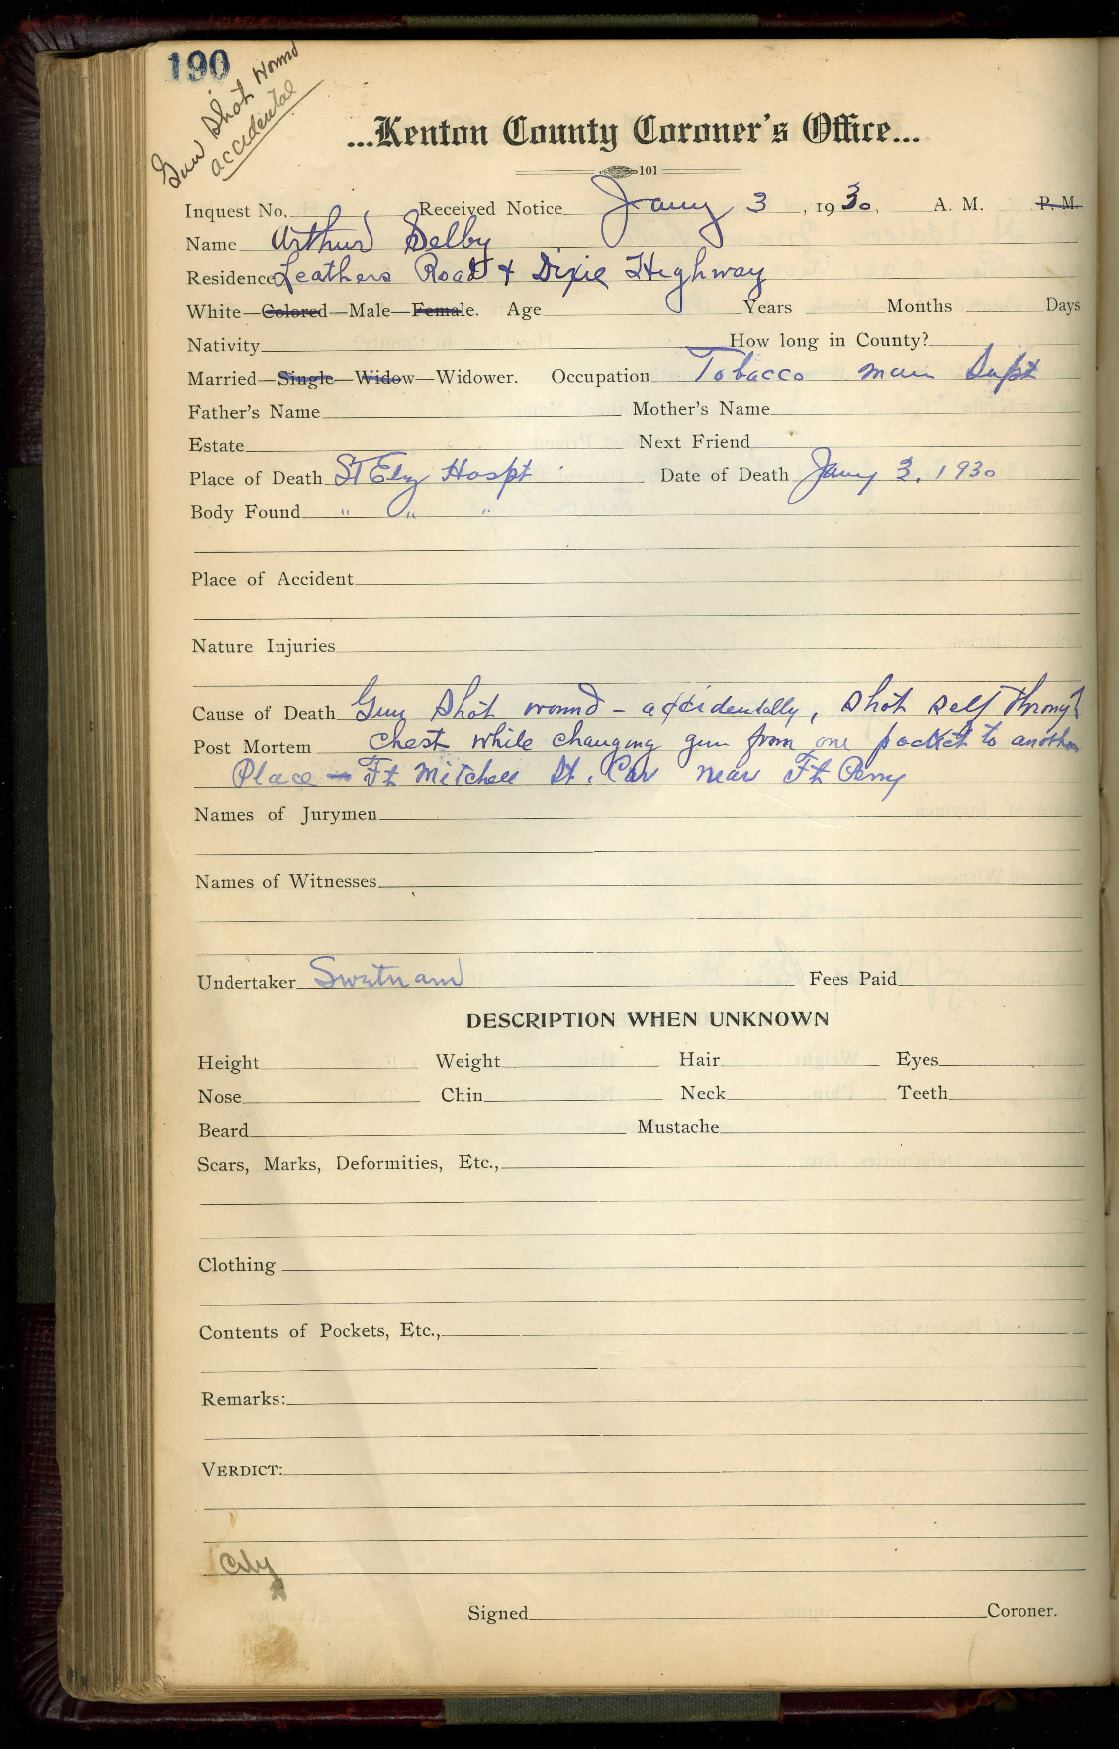 190
Gun Shot Wound
accidental
...Kenton County Coroner's Office...
101
Inquest No. Received Notice Jany 3, 1930, A. M. P. M.
Name Arthur Selby
Residence Leathers Road & Dixie Highway
White—Colored—Male—Female. Age Years Months Days
Nativity How long in County?
Married—Single—Widow—Widower. Occupation Tobacco man Supt
Father's Name Mother's Name
Estate Next Friend
Place of Death St Elz Hospt Date of Death Jany 3, 1930
Body Found " " "
Place of Accident
Nature Injuries
Cause of Death Gun Shot wound - accidentally, shot self through
Post Mortem chest while changing gun from one pocket to another
Place - Ft Mitchell St. Car near Ft Perry
Names of Jurymen
Names of Witnesses
Undertaker Swetnam Fees Paid
DESCRIPTION WHEN UNKNOWN
Height Weight Hair Eyes
Nose Chin Neck Teeth
Beard Mustache
Scars, Marks, Deformities, Etc.,
Clothing
Contents of Pockets, Etc.,
Remarks:
VERDICT:
City
Signed Coroner.